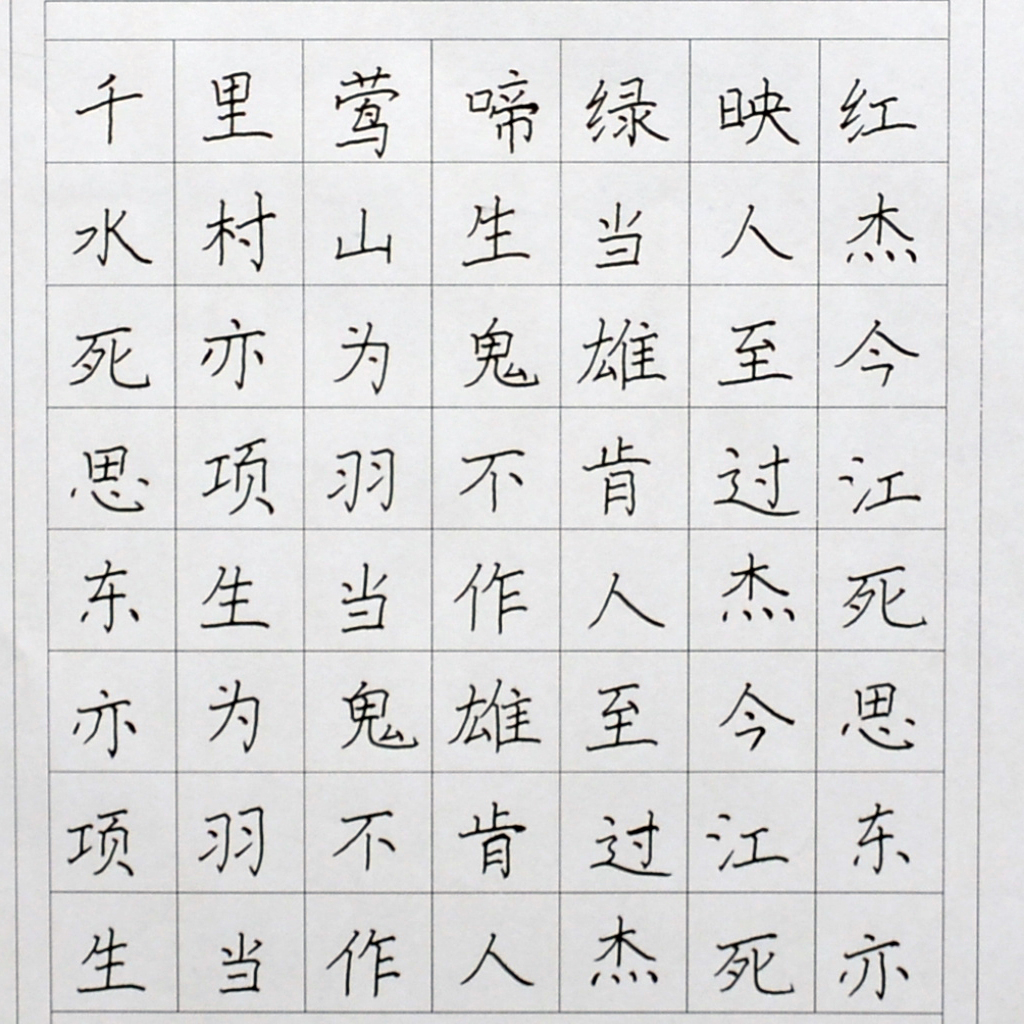 千里莺啼绿映红
水村山生当人杰
死亦为鬼雄至今
思项羽不肯过江
东生当作人杰死
亦为鬼雄至今思
项羽不肯过江东
生当作人杰死亦